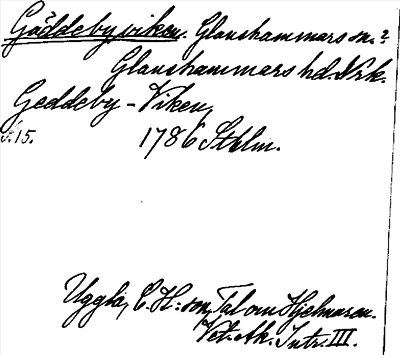 Gäddebyviken. Glanshammars sn.?
Glanshammars hd. Nrk.
Geddeby-Viken,
s. 15. 1786 Sthlm.
Uggla, C. H:son, Tal om Hjelmaren.
Vet. Ak. Intr. III.